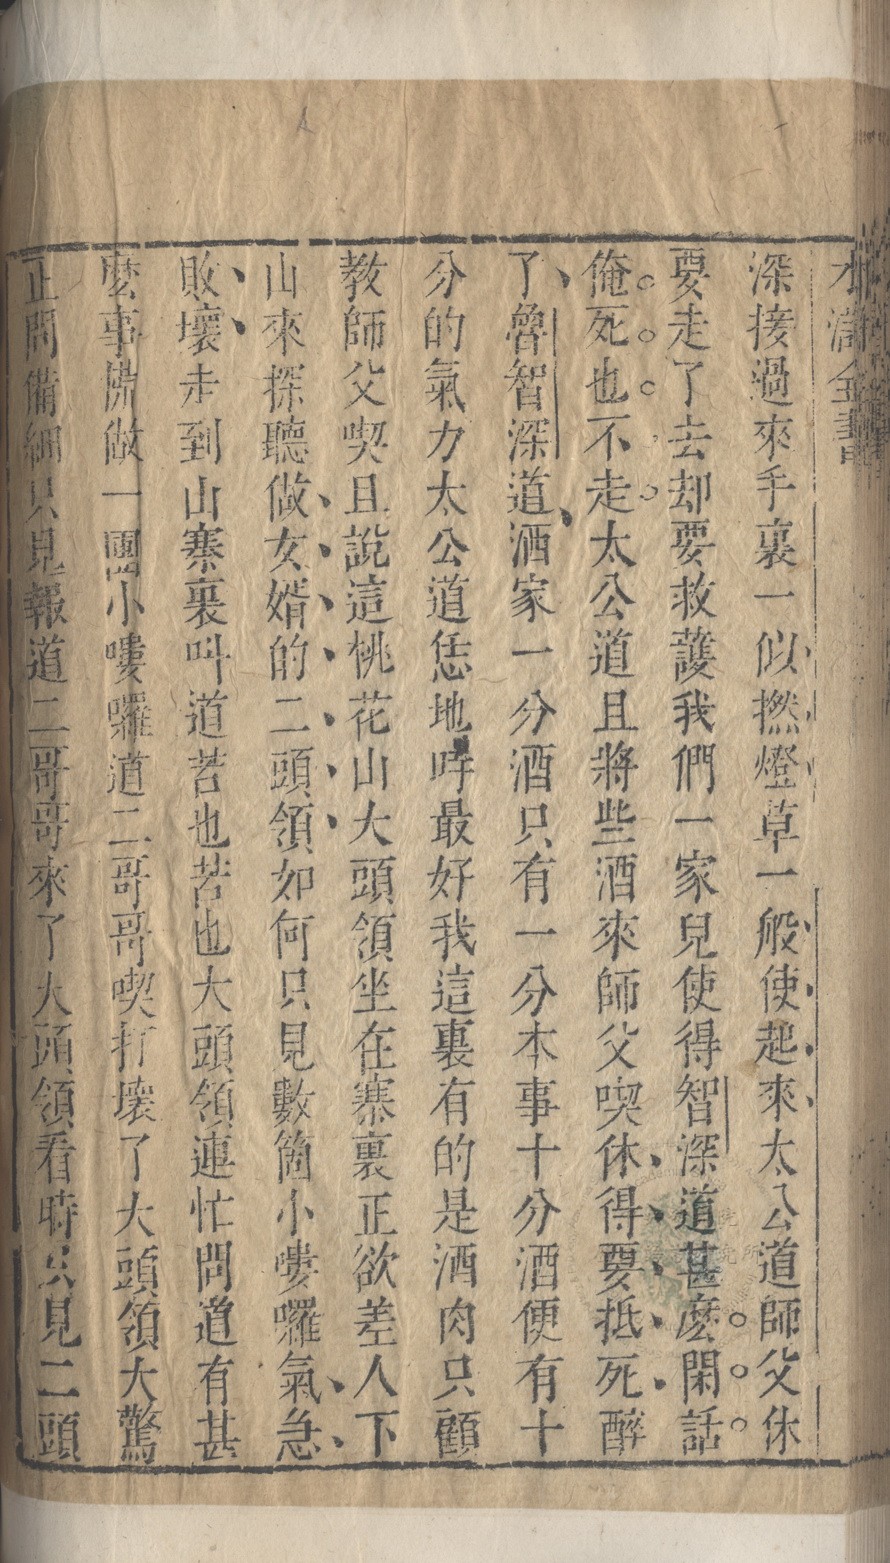 水滸全書
深接過來手裏一似撚燈草一般使起來太公道師父休
要走了去却要救護我們一家兒使得智深道甚麽閑話
俺死也不走太公道且將些酒來師父喫休得要抵死醉
了魯智深道洒家一分酒只有一分本事十分酒便有十
分的氣力太公道恁地時最好我這裏有的是酒肉只顧
教師父喫且說這桃花山大頭領坐在寨裏正欲差人下
山來探聽做女婿的二頭領如何只見數箇小嘍囉氣急
敗壞走到山寨裏叫道苦也苦也大頭領連忙問道有甚
麽事慌做一團小嘍囉道二哥哥喫打壞了大頭領大驚
正問備細只見報道二哥哥來了大頭領看時只見二頭